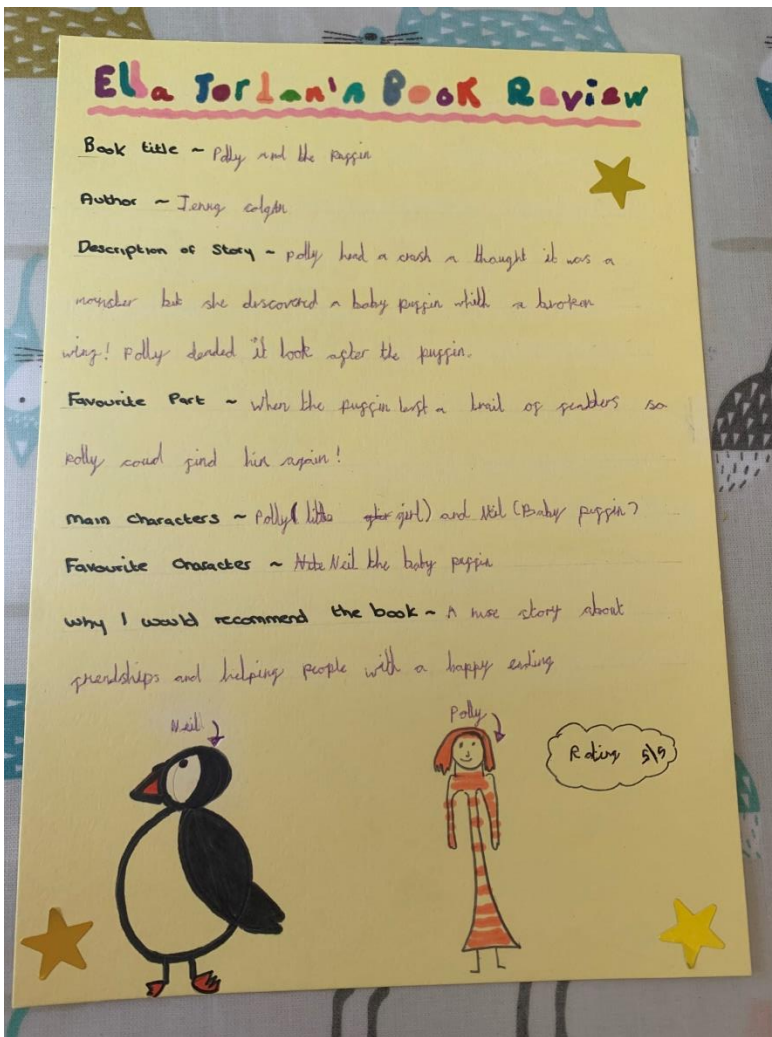 Ella Jordan's Book Review
Book title ~ Polly and the puffin
Author ~ Jenny colgan
Description of Story ~ polly head a crash a thought it was a
mounster but she discovered a baby puffin whith a broken
wing! Polly dended it look after the puffin.
Favourite Part ~ When the puffin left a trail of feathers so
Polly coud find him again!
main characters ~ Polly (little girl) and Neil (Baby puffin)
Favourite Character ~ Neil the baby puffin
why I would recommend the book ~ A nise story about
friendships and helping people with a happy ending
Neil
Polly
Rating 5\5